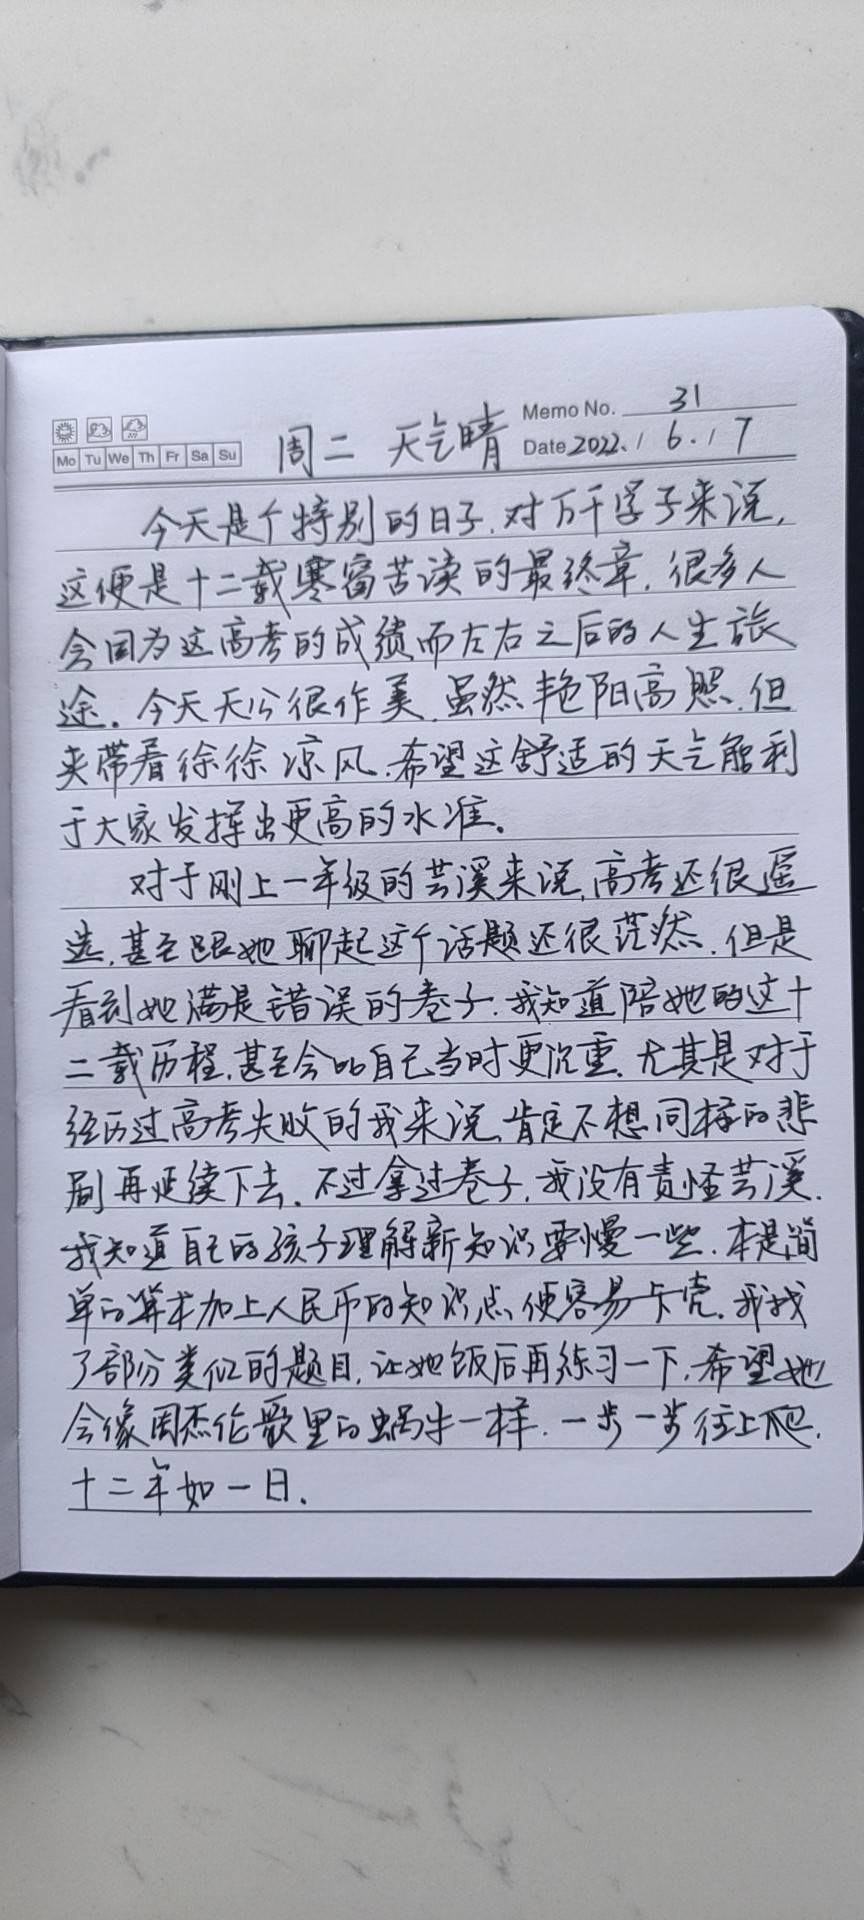 Memo No. 31
Mo Tu We Th Fr Sa Su 周二 天气晴 Date 2022. / 6. / 7
今天是个特别的日子.对万千学子来说,
这便是十二载寒窗苦读的最终章.很多人
会因为这高考的成绩而左右之后的人生旅
途.今天天公很作美.虽然艳阳高照.但
夹带着徐徐凉风.希望这舒适的天气能利
于大家发挥出更高的水准.
对于刚上一年级的芸溪来说,高考还很遥
远,甚至跟她聊起这个话题还很茫然.但是
看到她满是错误的卷子.我知道陪她的这十
二载历程,甚至会比自己当时更沉重.尤其是对于
经历过高考失败的我来说,肯定不想同样的悲
剧再延续下去.不过拿过卷子,我没有责怪芸溪.
我知道自己的孩子理解新知识要慢一些.本是简
单的算术加上人民币的知识点,便容易卡壳.我找
了部分类似的题目,让她饭后再练习一下,希望她
会像周杰伦歌里的蜗牛一样.一步一步往上爬.
十二年如一日.